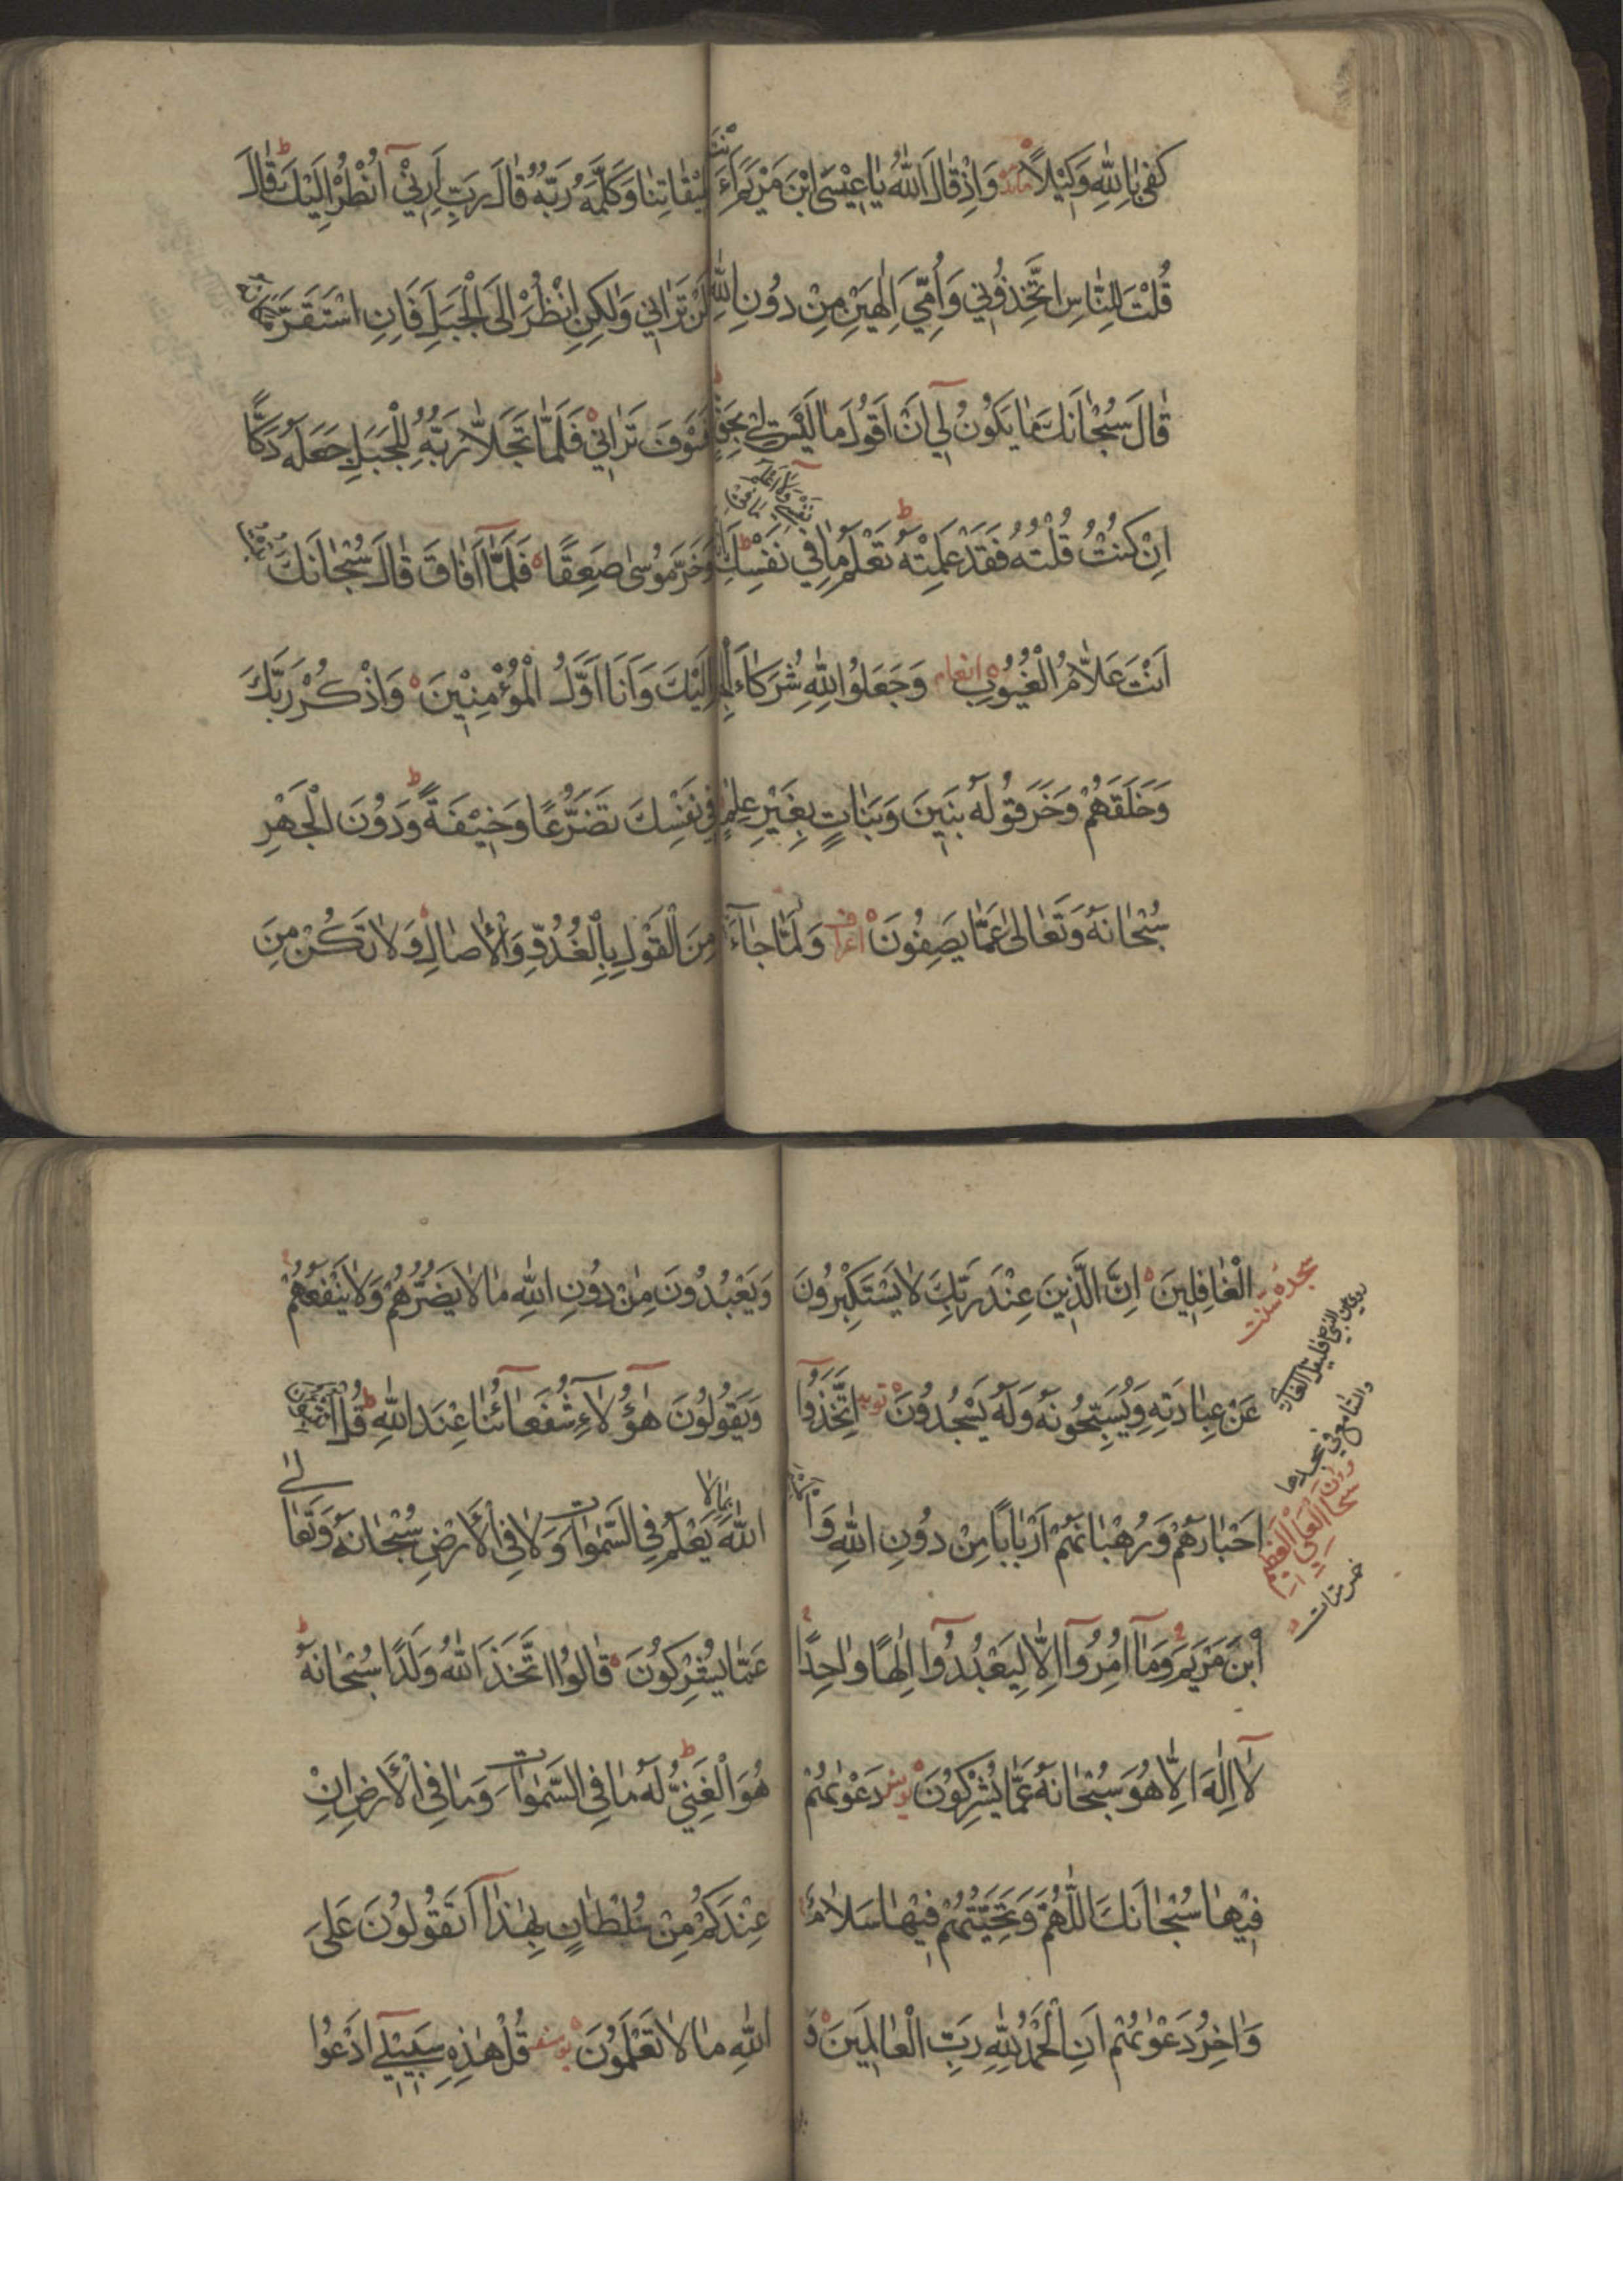 كَفىٰ بِاللّٰهِ وَكِيْلاً مائدة وَاِذْ قَالَ اللّٰهُ يَا عِيْسَى ابْنَ مَرْيَمَ ءَاَنْتَ
قُلْتَ لِلنَّاسِ اتَّخِذُوْنِي وَاُمِّيَ اِلٰهَيْنِ مِنْ دُوْنِ اللّٰهِ
قَالَ سُبْحَانَكَ مَا يَكُوْنُ لِي اَنْ اَقُوْلَ مَا لَيْسَ لِي بِحَقٍّ
اِنْ كُنْتُ قُلْتُهُ فَقَدْ عَلِمْتَهُ تَعْلَمُ مَا فِي نَفْسِكَ
نَفْسِي وَلَا اَعْلَمُ مَا فِي
اَنْتَ عَلاَّمُ الْغُيُوْبِ انعام وَجَعَلُوا لِلّٰهِ شُرَكَاءَ الْجِنَّ
وَخَلَقَهُمْ وَخَرَقُوا لَهُ بَنِيْنَ وَبَنَاتٍ بِغَيْرِ عِلْمٍ
سُبْحَانَهُ وَتَعَالىٰ عَمَّا يَصِفُوْنَ اعراف وَلَمَّا جَاءَ
مِيْقَاتِنَا وَكَلَّمَهُ رَبُّهُ قَالَ رَبِّ اَرِنِيْ اَنْظُرْ اِلَيْكَ قَالَ
لَنْ تَرَانِي وَلٰكِنِ انْظُرْ اِلَى الْجَبَلِ فَاِنِ اسْتَقَرَّ مَكَانَهُ
فَسَوْفَ تَرَانِيْ فَلَمَّا تَجَلاَّ رَبُّهُ لِلْجَبَلِ جَعَلَهُ دَكًّا
وَخَرَّ مُوْسٰى صَعِقًا فَلَمَّا اَفَاقَ قَالَ سُبْحَانَكَ تُبْتُ
اِلَيْكَ وَاَنَا اَوَّلُ الْمُؤْمِنِيْنَ وَاذْكُرْ رَبَّكَ
فِي نَفْسِكَ تَضَرُّعًا وَخِيْفَةً وَدُوْنَ الْجَهْرِ
مِنَ الْقَوْلِ بِالْغُدُوِّ وَالْاٰصَالِ وَلَا تَكُنْ مِنَ
الْغَافِلِيْنَ اِنَّ الَّذِيْنَ عِنْدَ رَبِّكَ لَا يَسْتَكْبِرُوْنَ
عَنْ عِبَادَتِهِ وَيُسَبِّحُوْنَهُ وَلَهُ يَسْجُدُوْنَ توبه اِتَّخَذُوا
اَحْبَارَهُمْ وَرُهْبَانَهُمْ اَرْبَابًا مِنْ دُوْنِ اللّٰهِ وَالْمَسِيْحَ
ابْنَ مَرْيَمَ وَمَا اُمِرُوا اِلاَّ لِيَعْبُدُوا اِلٰهًا وَاحِدًا
لَا اِلٰهَ اِلاَّ هُوَ سُبْحَانَهُ عَمَّا يُشْرِكُوْنَ يونس دَعْوٰيهُمْ
فِيْهَا سُبْحَانَكَ اللّٰهُمَّ وَتَحِيَّتُهُمْ فِيْهَا سَلَامٌ
وَاٰخِرُ دَعْوٰيهُمْ اَنِ الْحَمْدُ لِلّٰهِ رَبِّ الْعَالَمِيْنَ
سجده سنت
سبحان ربي العلي العظيم
وَيَعْبُدُوْنَ مِنْ دُوْنِ اللّٰهِ مَا لَا يَضُرُّهُمْ وَلَا يَنْفَعُهُمْ
وَيَقُوْلُوْنَ هٰؤُلَاءِ شُفَعَاؤُنَا عِنْدَ اللّٰهِ قُلْ اَتُنَبِّئُوْنَ
اللّٰهَ بِمَا لَا يَعْلَمُ فِي السَّمٰوَاتِ وَلَا فِي الْاَرْضِ سُبْحَانَهُ وَتَعَالٰى
عَمَّا يُشْرِكُوْنَ قَالُوا اتَّخَذَ اللّٰهُ وَلَدًا سُبْحَانَهُ
هُوَ الْغَنِيُّ لَهُ مَا فِي السَّمٰوَاتِ وَمَا فِي الْاَرْضِ اِنْ
عِنْدَكُمْ مِنْ سُلْطَانٍ بِهٰذَا اَتَقُوْلُوْنَ عَلَى
اللّٰهِ مَا لَا تَعْلَمُوْنَ يوسف قُلْ هٰذِهِ سَبِيْلِي اَدْعُوا